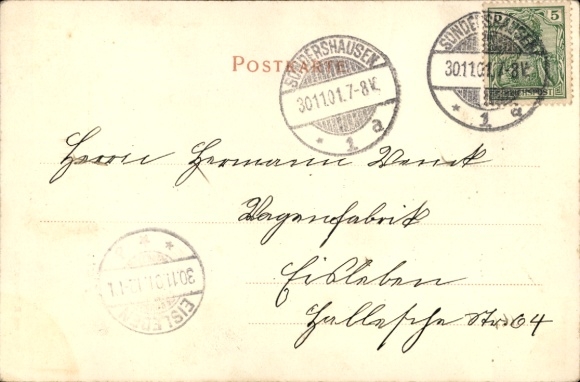 POSTKARTE
SONDERSHAUSEN
30.11.01.7-8V.
* 1 a
SONDERSHAUSEN
30.11.01.7-8V.
* 1 a
5
REICHSPOST
Herrn Hermann Wenck
Wagenfabrik
Eisleben
Hallesche Str. 64
EISLEBEN
30.11.01.